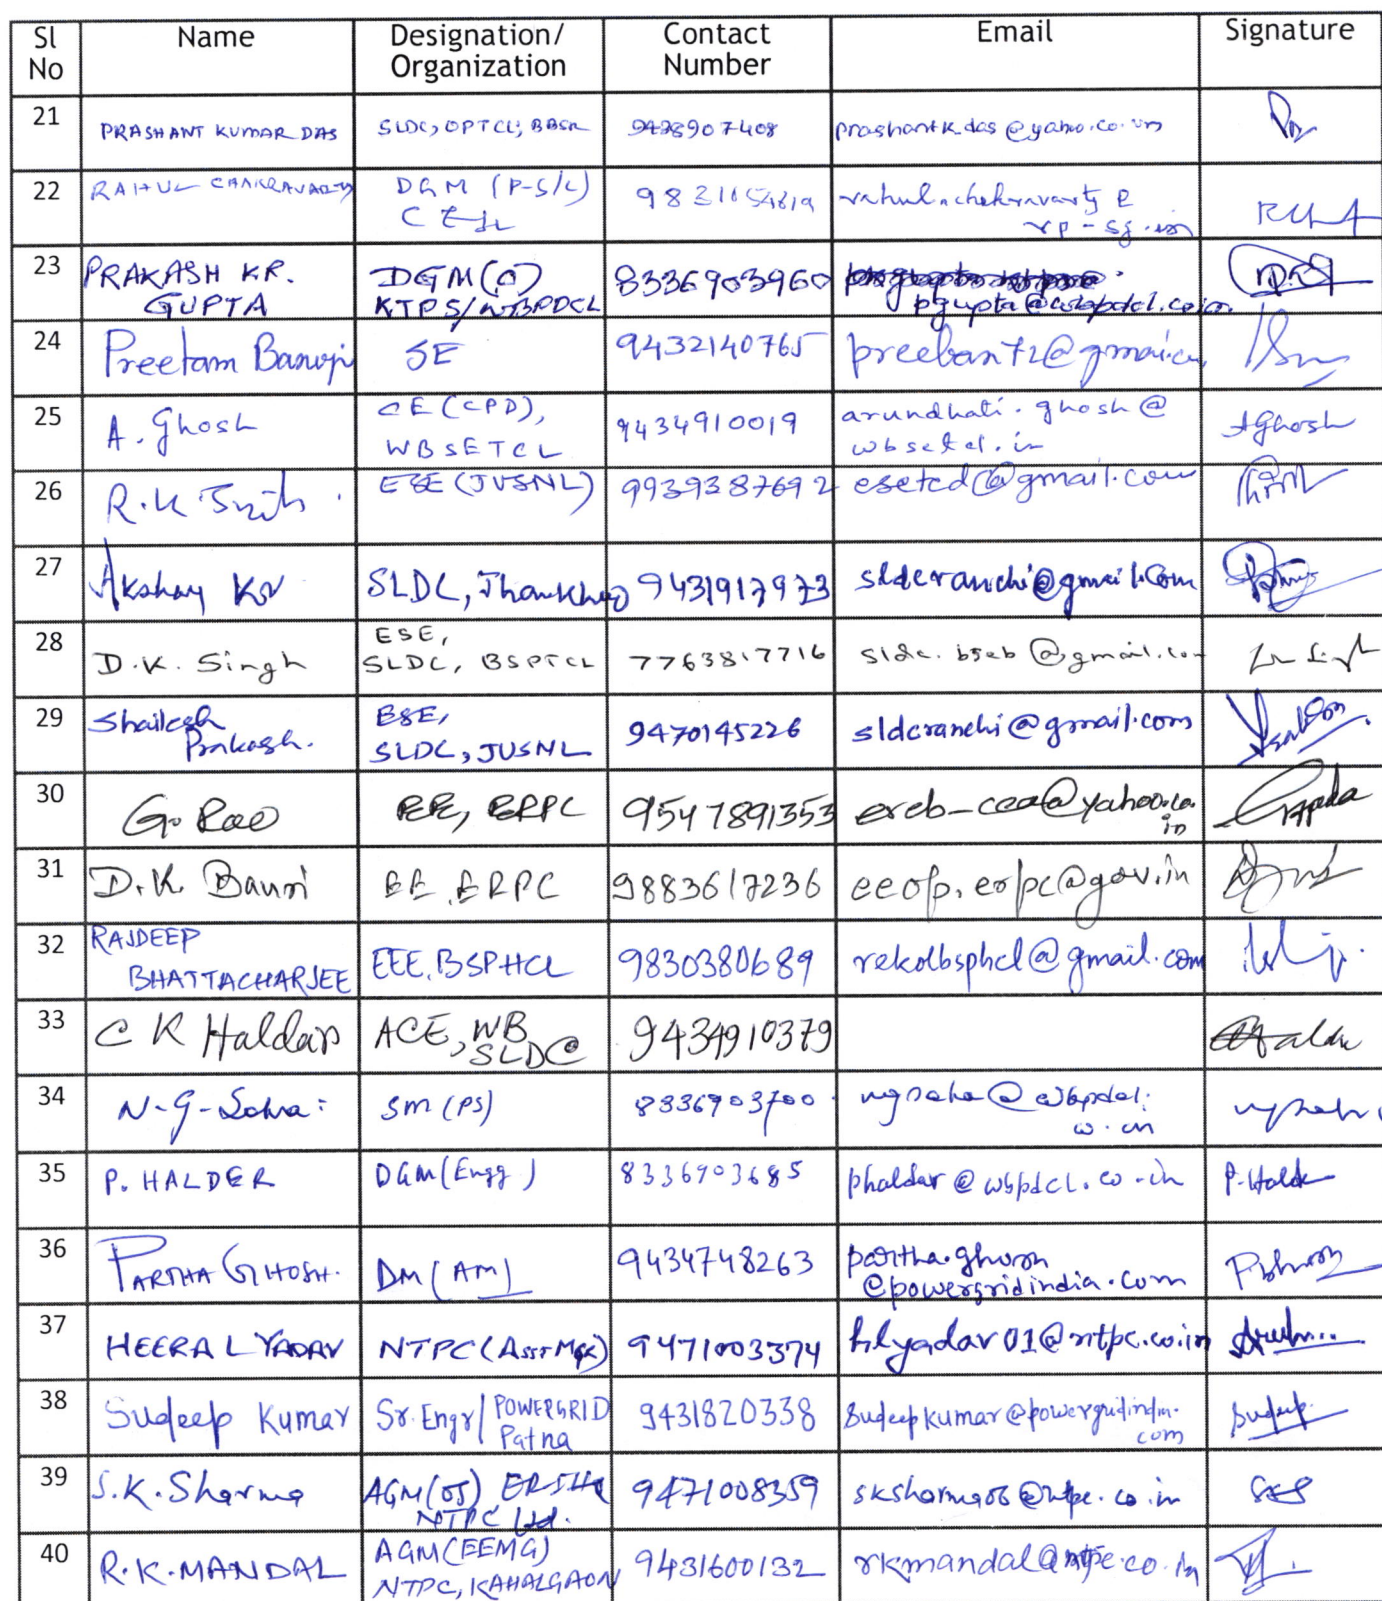 Sl No Name Designation/ Organization Contact Number Email Signature
21 PRASHANT KUMAR DAS SLDC, OPTCL, BBSR 9438907408 prashantk_das@yahoo.co.in
22 RAHUL CHAKRAVARTY DGM (P-S/L) 9831054819
CESC rp-sg.in
23 PRAKASH KR. DGM(O) 8336903960
GUPTA KTPS/WBPDCL pgupta@wbpdcl.co.in
24 Preetam Banerji SE 9432140765
25 A. Ghosh CE (CPD), 9434910019 arundhati.ghosh@ AGhosh
WBSETCL wbsetcl.in
26 ESE (JUSNL) 9939387692 esetcd@gmail.com
27 Akshay Kr SLDC, Jharkhand 9431917973 sldcranchi@gmail.com
28 D.K. Singh ESE, 7763817716 sldc.bseb@gmail.com
SLDC, BSPTCL
29 Shailesh ESE, 9470145226 sldcranchi@gmail.com
Prakash. SLDC, JUSNL
30 G. Rao EE, ERPC 9547891353 ereb_cea@yahoo.co.
in
31 D.K. Bauri EE, ERPC 9883617236 eeop.erpc@gov.in
32 RAJDEEP
BHATTACHARJEE EEE, BSPHCL 9830380689 rekolbsphcl@gmail.com
33 C K Haldar ACE, WB 9434910379
SLDC
34 N.G. Saha SM (PS) 8336903700 ngsaha@wbpdcl.
co.in
35 P. HALDER DGM (Engg) 8336903685 phaldar@wbpdcl.co.in P. Halder
36 PARTHA GHOSH. DM (AM) 9434748263 partha.ghosh
@powergridindia.com
37 HEERA L YADAV NTPC (Asst Mgr) 9471003374 hlyadav01@ntpc.co.in
38 Sudeep Kumar Sr. Engr/ POWERGRID 9431820338 sudeepkumar@powergridindia. Sudeep
Patna com
39 S.K. Sharma AGM (OS) ERIHQ 9471008359 sksharma06@ntpc.co.in SKS
NTPC Ltd.
40 R.K. MANDAL AGM (EEMG) 9431600132 rkmandal@ntpc.co.in
NTPC, KAHALGAON